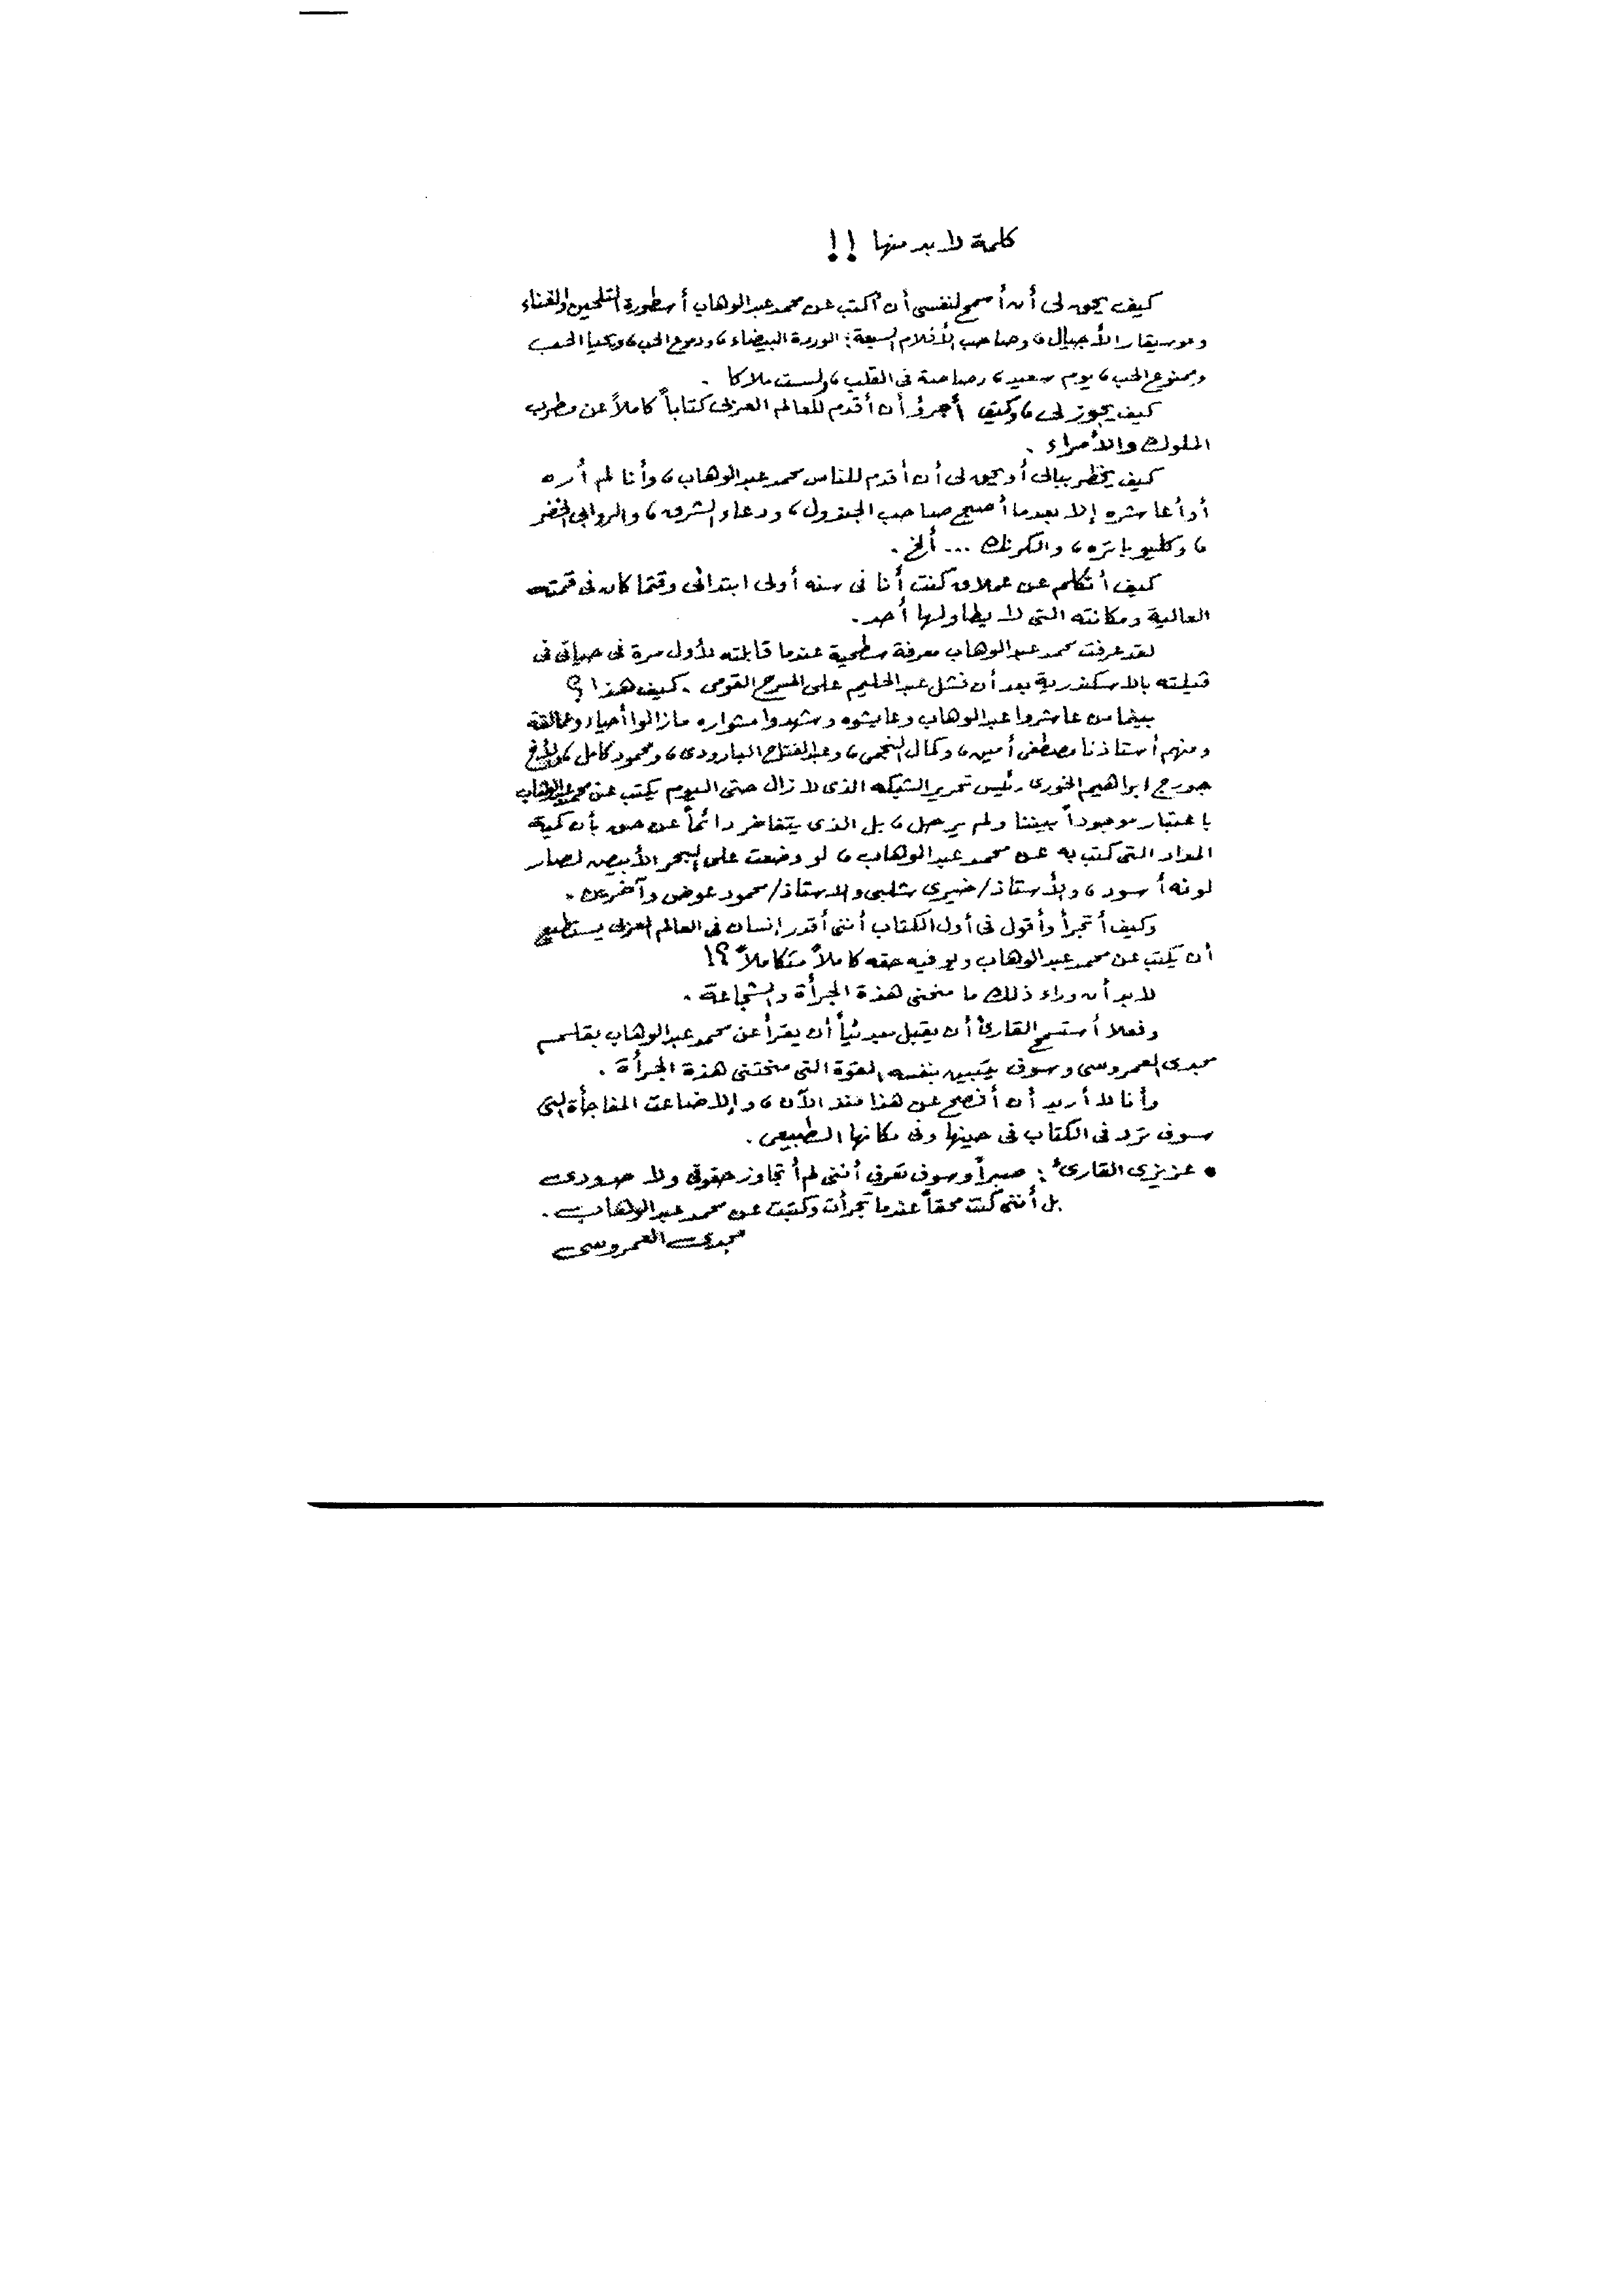 كلمة لابد منها !!
كيف يحق لى أن أسمح لنفسى أن أكتب عن محمد عبدالوهاب أسطورة التلحين والغناء
وموسيقار الأجيال، وصاحب الأفلام السبعة: الوردة البيضاء، ودموع الحب، ويحيا الحب
وممنوع الحب، يوم سعيد، رصاصة فى القلب، ولست ملاكا .
كيف يجوز لى، وكيف أجرؤ أن أقدم للعالم العربى كتاباً كاملاً عن مطرب
الملوك والأمراء .
كيف يخطر ببالى أو يحق لى أن أقدم للناس محمد عبدالوهاب، وأنا لم أره
أو أعاشره إلا بعدما أصبح صاحب الجندول، ودعاء الشرق، والروابى الخضر
، وكليوباتره، والكرنك ... ألخ .
كيف أتكلم عن عملاق كنت أنا فى سنه أولى ابتدائى وقتما كان فى قمته
العالية ومكانته التى لا يطاولها أحد.
لقد عرفت محمد عبدالوهاب معرفة سطحية عندما قابلته لأول مرة فى حياتى فى
فيلته بالاسكندرية بعد أن فشل عبدالحليم على المسرح القومى . كيف هذا ؟
بينما من عاشروا عبدالوهاب وعايشوه وشهدوا مشواره مازالوا أحياء وعمالقة
ومنهم أستاذنا مصطفى أمين، وكمال النجمى، وعبدالفتاح البارودى، ومحمود كامل، والأخ
جورج ابراهيم الخورى رئيس تحرير الشبكه الذى لا زال حتى اليوم يكتب عن محمد عبدالوهاب
باعتباره موجوداً بيننا ولم يرحل، بل الذى يتفاخر دائماً عن حق بأن كمية
المداد التى كتب به عن محمد عبدالوهاب، لو وضعت على البحر الأبيض لصار
لونه أسود، والأستاذ/خيرى شلبى والاستاذ/محمود عوض وآخرين .
وكيف أتجرأ وأقول فى أول الكتاب أننى أقدر إنسان فى العالم العربى يستطيع
أن يكتب عن محمد عبدالوهاب ويوفيه حقه كاملاً متكاملاً ؟!
لابد أن وراء ذلك ما منحنى هذة الجرأة والشجاعة .
وفعلا أستسمح القارئ أن يقبل مبدئياً أن يقرأ عن محمد عبدالوهاب بقلم
مجدى العمروسى وسوف يتبين بنفسه القوة التى منحتنى هذة الجرأة .
وأنا لا أريد أن أفصح عن هذا منذ الآن، وإلا ضاعت المفاجأة التى
سوف ترد فى الكتاب فى حينها وفى مكانها الطبيعى .
• عزيزى القارئ : صبراً وسوف تعرف أننى لم أتجاوز حقوقى ولا حدودى
بل أننى كنت محقاً عندما تجرأت وكتبت عن محمد عبدالوهاب .
مجدى العمروسى